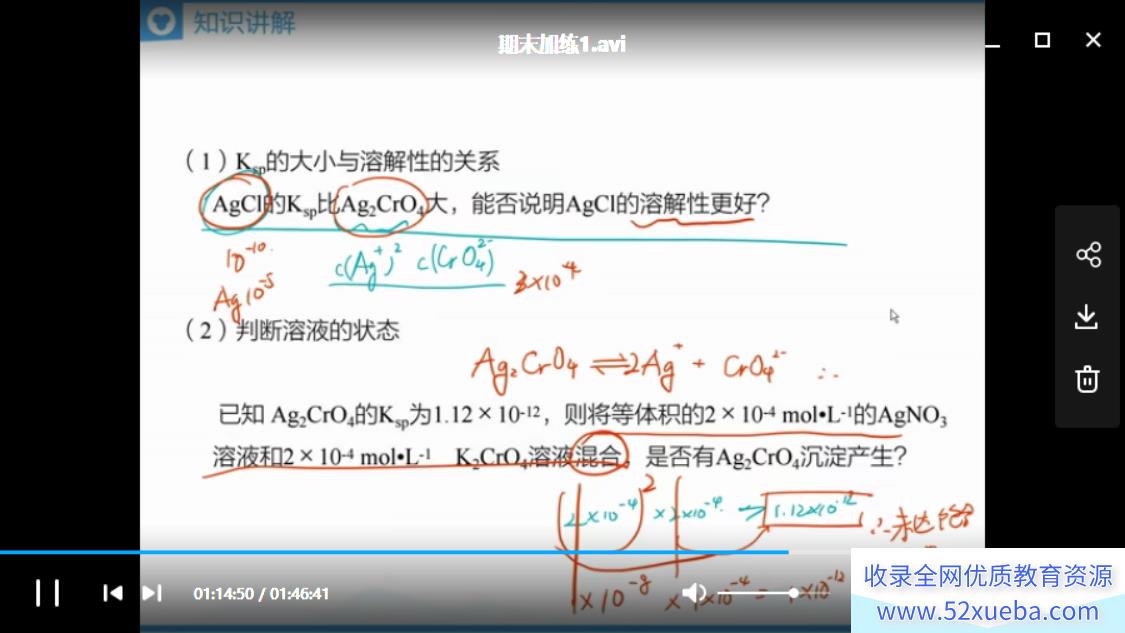 知识讲解
期末加练1.avi
（1）Ksp的大小与溶解性的关系
AgCl的Ksp比Ag₂CrO₄大，能否说明AgCl的溶解性更好？
10⁻¹⁰
c(Ag⁺)² c(CrO₄²⁻)
Ag 10⁻⁵
（2）判断溶液的状态
Ag₂CrO₄ ⇌ 2Ag⁺ + CrO₄²⁻ ∴
已知 Ag₂CrO₄的Ksp为1.12 × 10⁻¹²，则将等体积的2 × 10⁻⁴ mol•L⁻¹的AgNO₃
溶液和2 × 10⁻⁴ mol•L⁻¹ K₂CrO₄溶液混合，是否有Ag₂CrO₄沉淀产生？
1.12×10⁻¹²
01:14:50 / 01:46:41
收录全网优质教育资源
www.52xueba.com